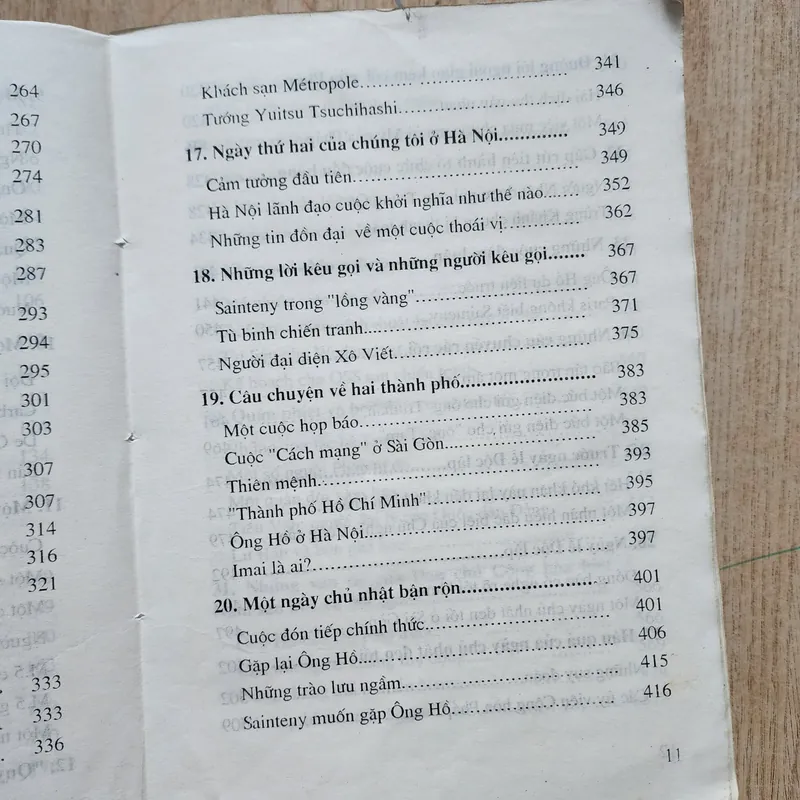 264
267
270
274
281
283
287
293
294
295
301
303
307
307
314
316
321
333
333
336
Khách sạn Métropole 341
Tướng Yuitsu Tsuchihashi 346
17. Ngày thứ hai của chúng tôi ở Hà Nội 349
Cảm tưởng đầu tiên 349
Hà Nội lãnh đạo cuộc khởi nghĩa như thế nào 352
Những tin đồn đại về một cuộc thoái vị 362
18. Những lời kêu gọi và những người kêu gọi 367
Sainteny trong "lồng vàng" 367
Tù binh chiến tranh 371
Người đại diện Xô Viết 375
19. Câu chuyện về hai thành phố 383
Một cuộc họp báo 383
Cuộc "Cách mạng" ở Sài Gòn 385
Thiên mệnh 393
"Thành phố Hồ Chí Minh" 395
Ông Hồ ở Hà Nội 397
Imai là ai? 397
20. Một ngày chủ nhật bận rộn 401
Cuộc đón tiếp chính thức 401
Gặp lại Ông Hồ 406
Những trào lưu ngầm 415
Sainteny muốn gặp Ông Hồ 416
11